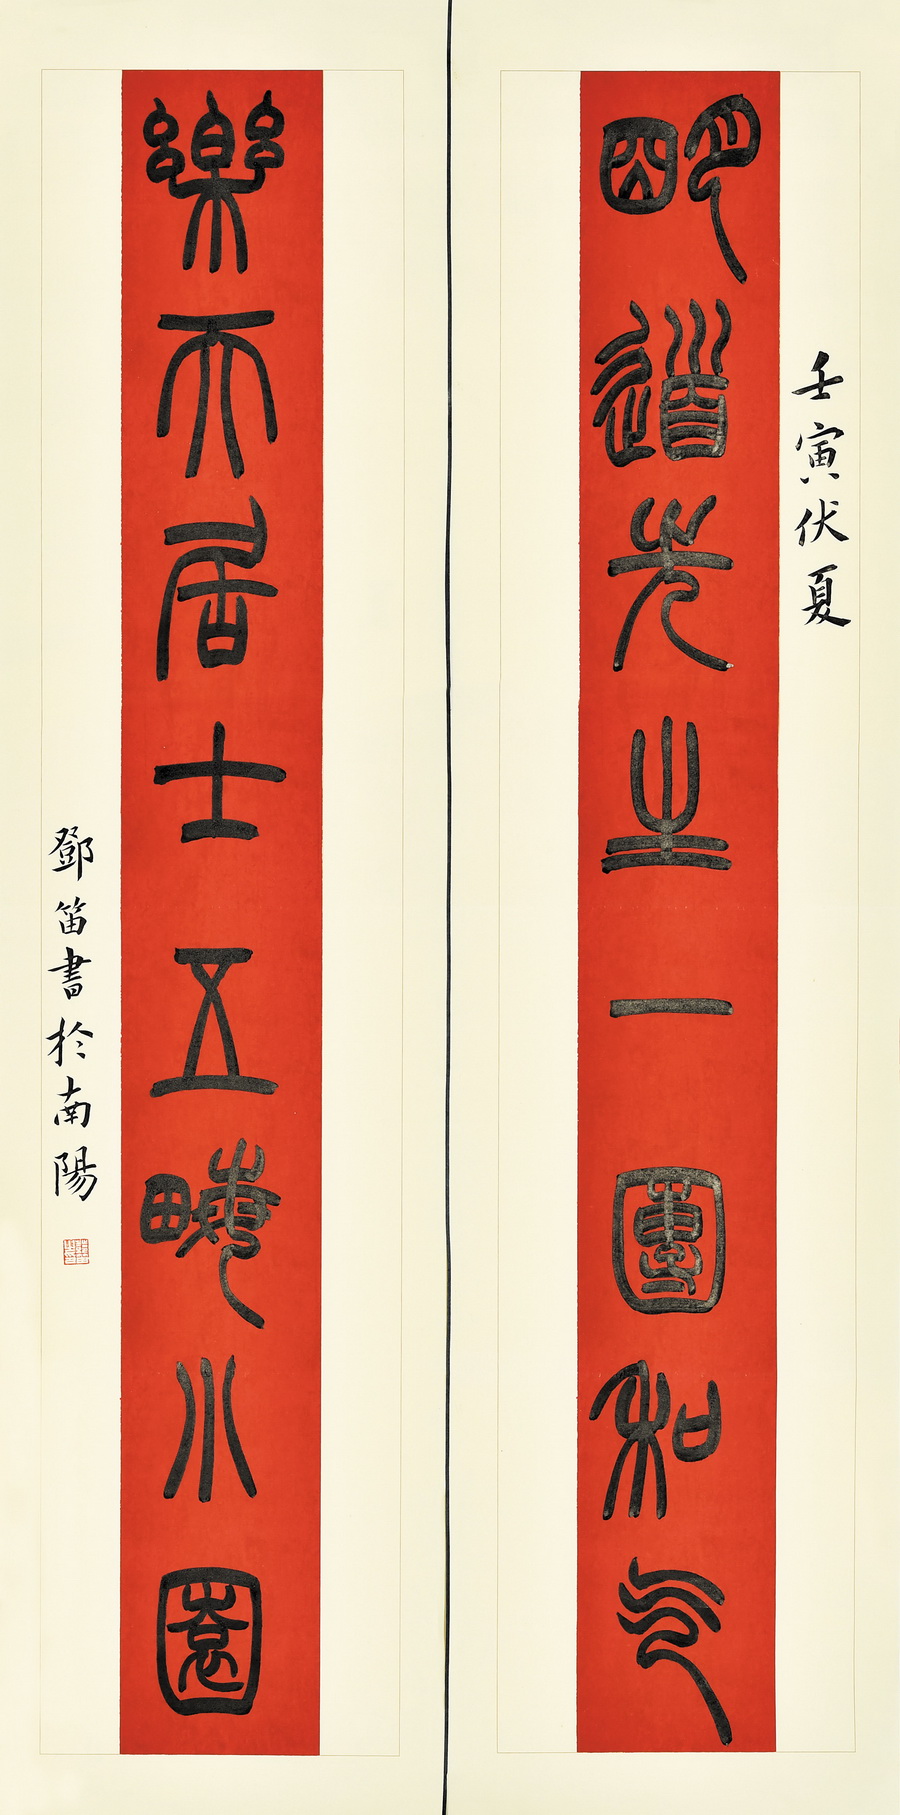 壬寅伏夏
明道先生一團和气
樂天居士五畮小園
鄧笛書於南陽